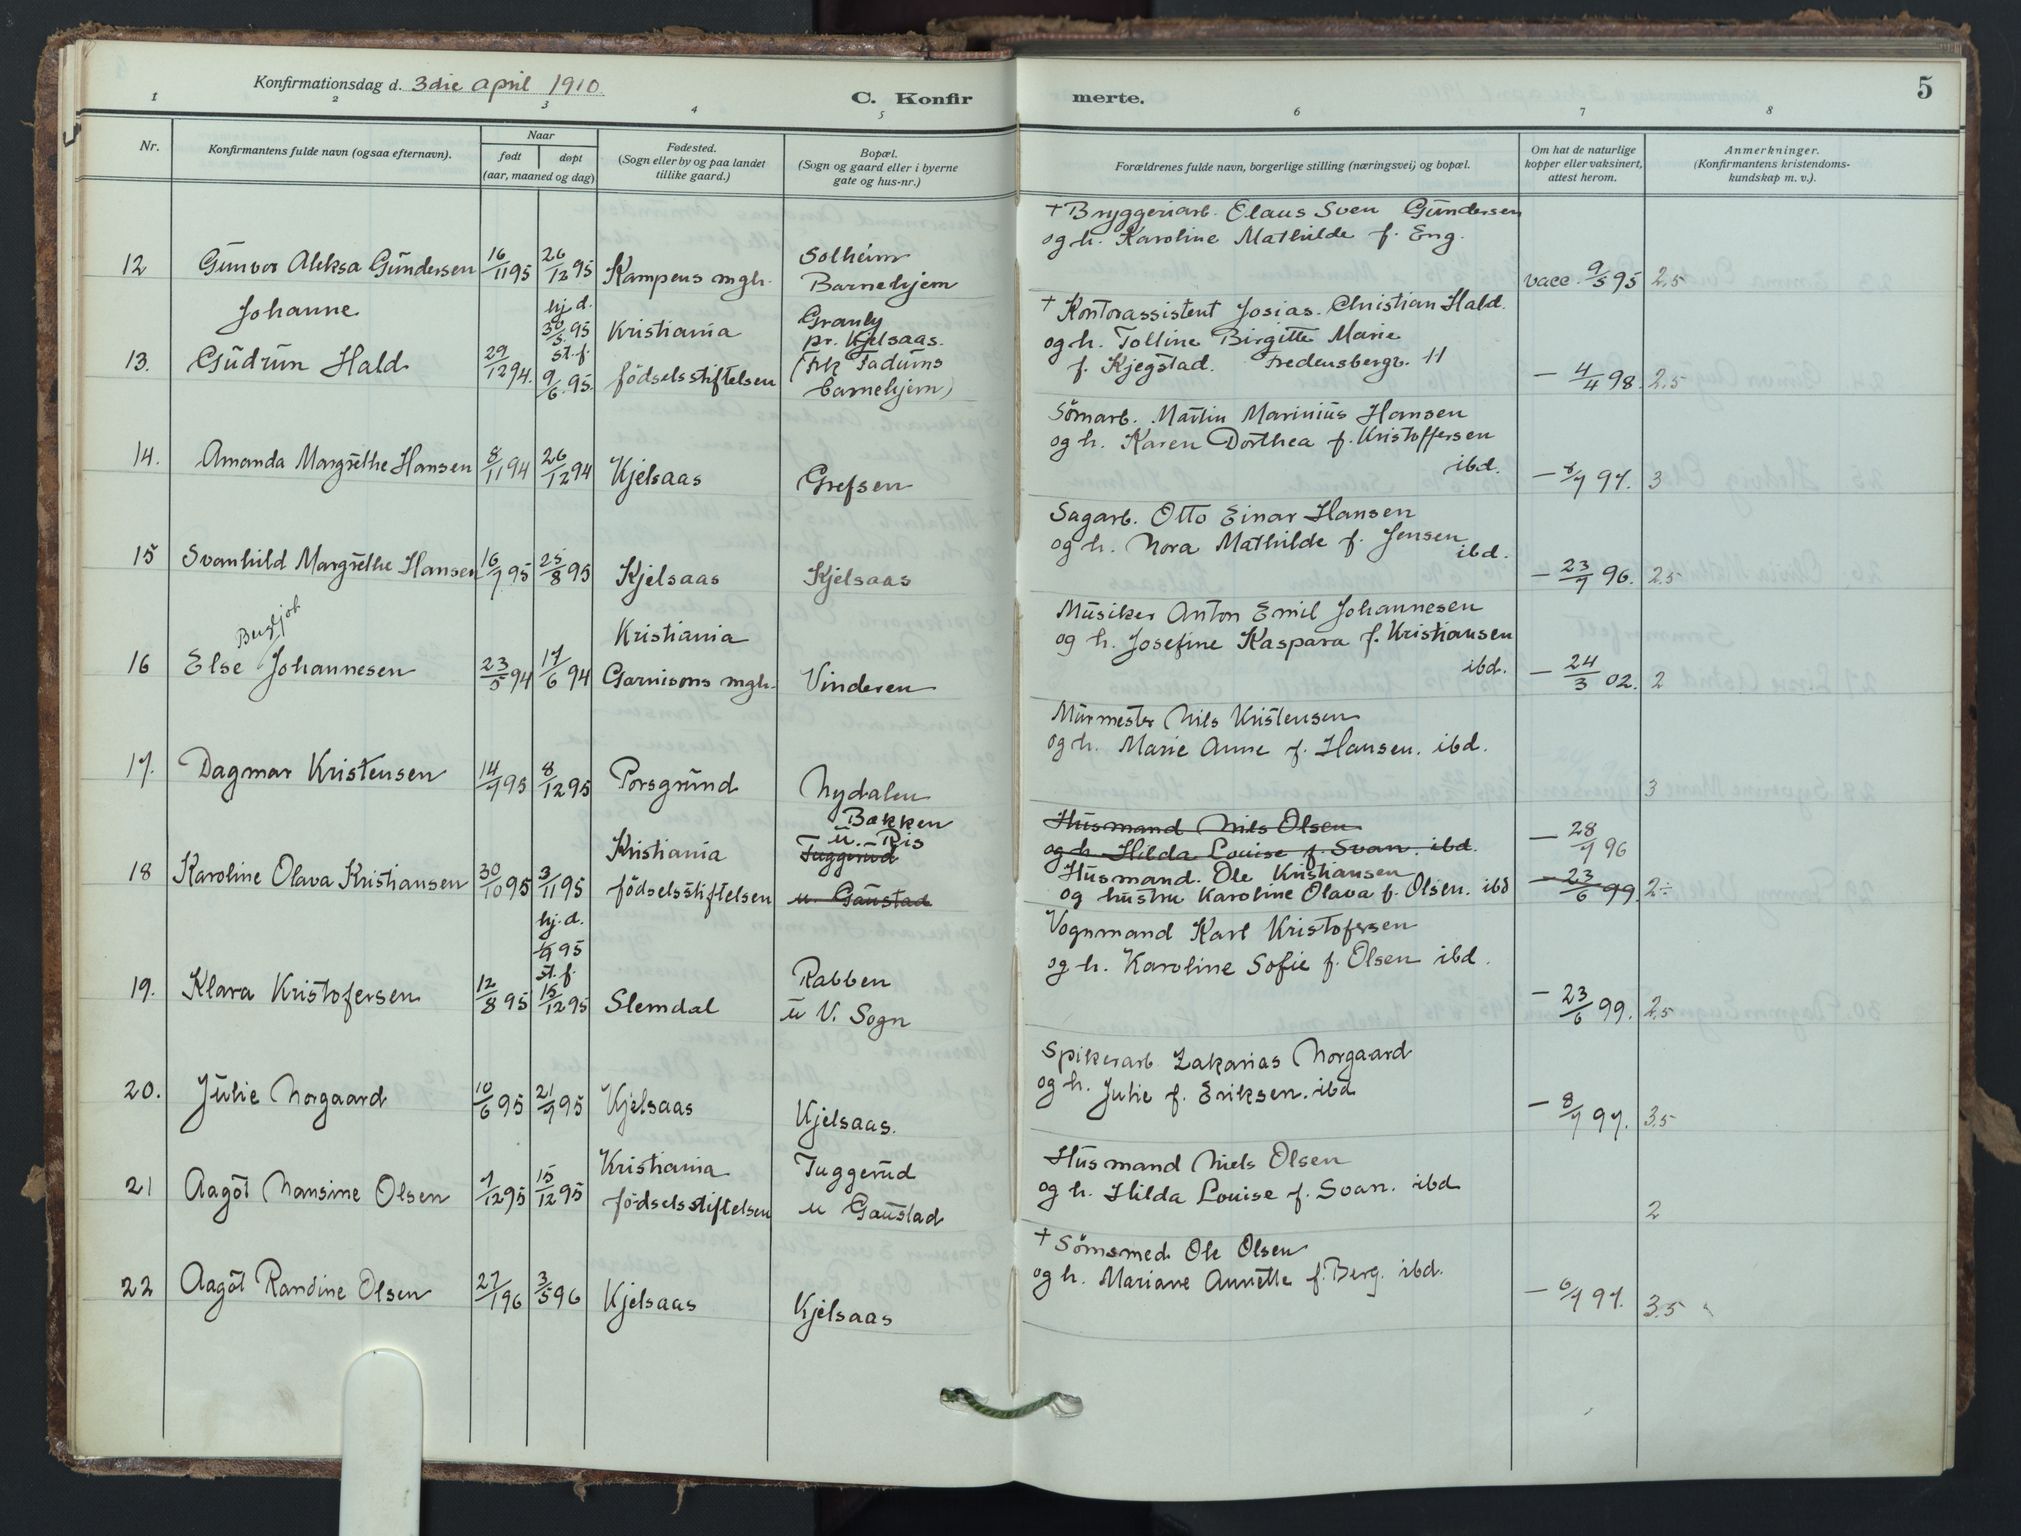 Konfirmationsdag d. 3die april 1910
C. Konfirmerte.
5
1 2 3 4 5 6 7 8
Nr.
Konfirmantens fulde navn (ogsaa efternavn).
Naar
født
døpt
(aar, maaned og dag)
Fødested.
(Sogn eller by og paa landet
tillike gaard.)
Bopæl.
(Sogn og gaard eller i byerne
gate og hus-nr.)
Forældrenes fulde navn, borgerlige stilling (næringsvei) og bopæl.
Om hat de naturlige
kopper eller vaksinert,
attest herom.
Anmerkninger.
(Konfirmantens kristendoms-
kundskap m. v.).
12 Gunvor Aleksa Gundersen 16/11 95 26/12 95 Kampens mgh. Solheim
Barnehjem
+ Bryggeriarb. Claus Sven Gundersen
og h. Karoline Mathilde f. Eng.
vacc. 9/5 95 2.5
Johanne
13. Gudrun Hald 29/12 94. hj. d.
30/5 95
st. f.
9/6 95. Kristiania
fødselsstiftelsen Granly
pr. Kjelsaas.
(Frk Tadums
barnehjem)
+ Kontorassistent Josias Christian Hald.
og h. Tolline Birgitte Marie
f. Kjegstad. Fredensbergv. 11
— 4/4 98. 2.5
14. Amanda Margrethe Hansen 8/11 94 26/12 94 Kjelsaas Grefsen
Sömarb. Martin Marinius Hansen
og h. Karen Dorthea f. Kristoffersen
ibd.
— 8/7 97. 3
15 Svanhild Margrethe Hansen 16/7 95 25/8 95 Kjelsaas Kjelsaas
Sagarb. Otto Einar Hansen
og h. Nora Mathilde f. Jensen
ibd.
— 23/7 96. 2.5
Bergljot
16 Else Johannesen 23/5 94 17/6 94 Kristiania
Garnisons mgh. Vinderen
Musiker Anton Emil Johannesen
og h. Josefine Kaspara f. Kristiansen
ibd.
— 24/3 02. 2
17. Dagmar Kristensen 14/7 95 8/12 95 Porsgrund Nydalen
Murmester Nils Kristensen
og h. Marie Anne f. Hansen. ibd.
3
18 Karoline Olava Kristiansen 30/10 95 3/11 95 Kristiania
fødselsstiftelsen Bakken
u. Ris
Tuggerud
u. Gaustad
Husmand Nils Olsen
og h. Hilda Louise f. Svan. ibd.
Husmand. Ole Kristiansen
og hustru Karoline Olava f. Olsen. ibd
— 28/7 96
— 23/6 99. 2÷
19. Klara Kristofersen 12/8 95 hj. d.
1/9 95
st. f.
15/12 95 Slemdal Rabben
u V. Sogn
Vognmand Karl Kristofersen
og h. Karoline Sofie f. Olsen ibd.
— 23/6 99. 2.5
20. Julie Norgaard 10/6 95 21/9 95 Kjelsaas Kjelsaas.
Spikerarb Zakarias Norgaard
og h. Julie f. Eriksen. ibd
— 8/7 97. 3.5
21 Aagot Nansine Olsen 7/12 95 15/12 95 Kristiania
fødselsstiftelsen Tuggerud
u Gaustad
Husmand Niels Olsen
og h. Hilda Louise f. Svan. ibd
2
22 Aagot Randine Olsen 27/1 96 3/5 96 Kjelsaas Kjelsaas
+ Sömsmed Ole Olsen
og h. Mariane Annette f. Berg. ibd.
— 6/7 97. 3.5